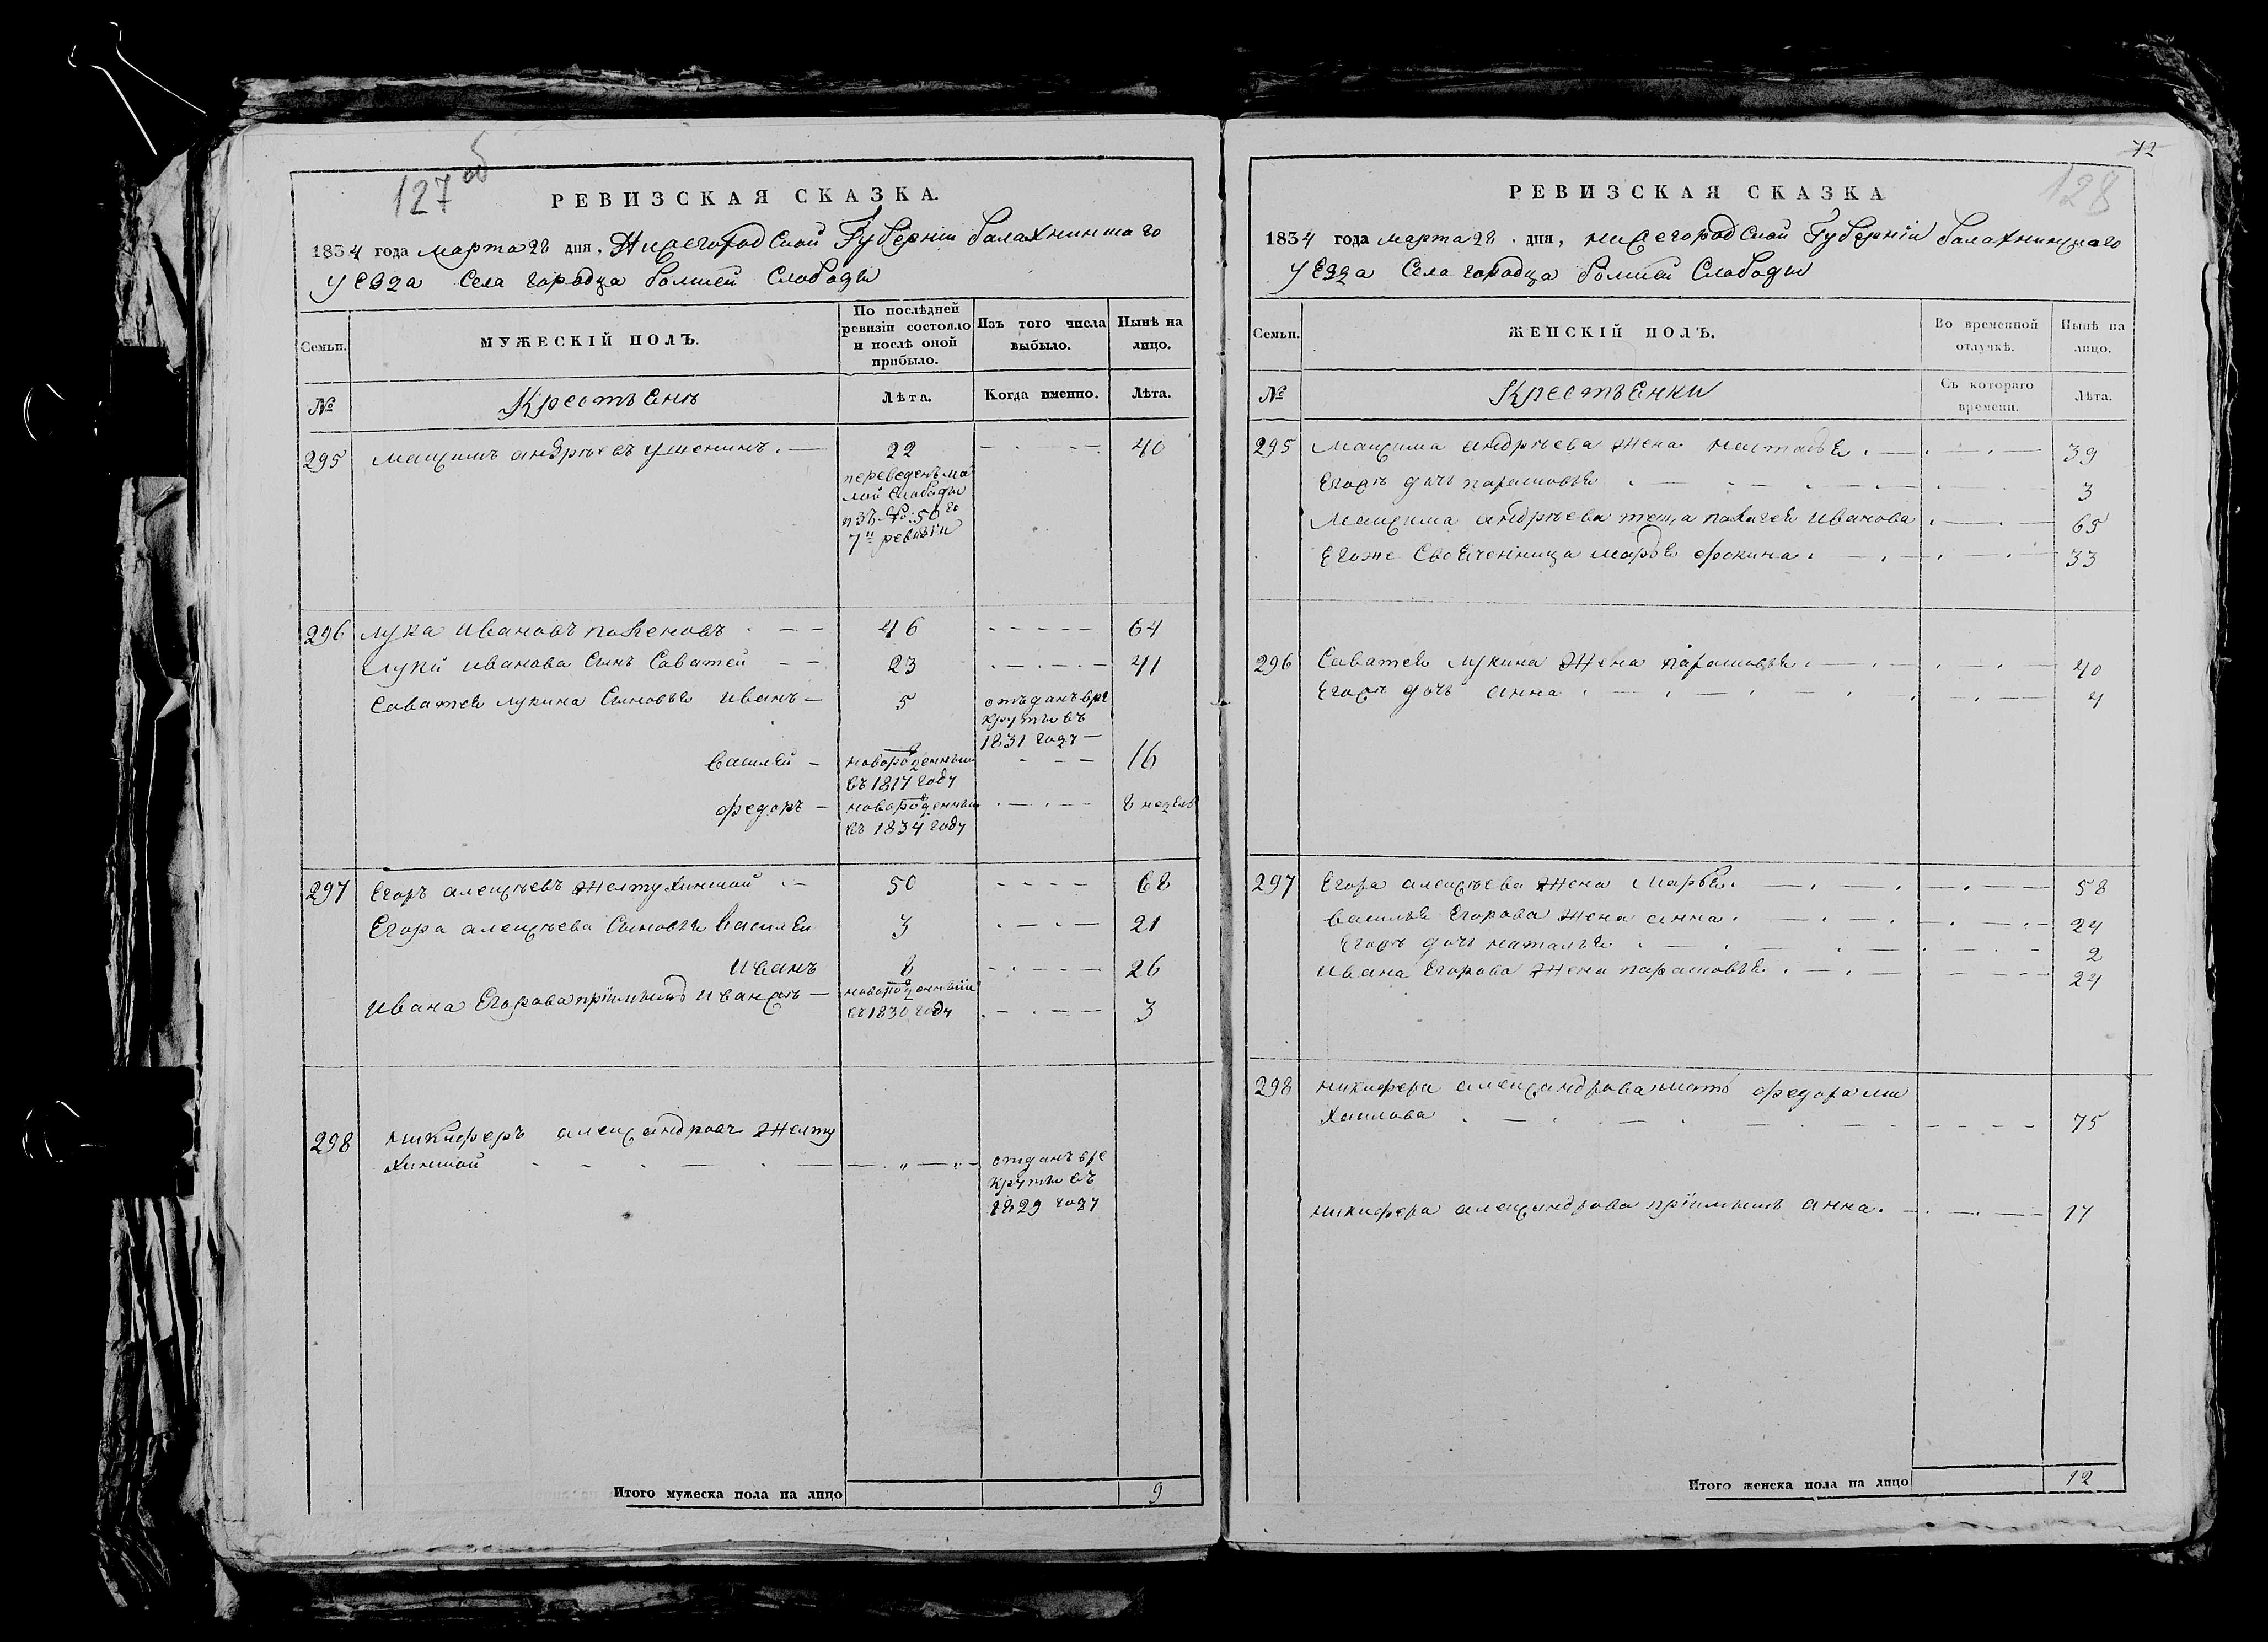 127 об
РЕВИЗСКАЯ СКАЗКА.
1834 года марта 28 дня, Нижегородской Губерніи балахнинскаго
уезда Села городца болшей Слободы
Семьи.
МУЖЕСКІЙ ПОЛЪ.
По послѣдней ревизіи состояло и послѣ оной прибыло.
Изъ того числа выбыло.
Нынѣ на лицо.
№
Крестьянъ
Лѣта.
Когда именно.
Лѣта.
295 Максимъ андрѣевъ 22 40
переведенъ ма
лой Слободы
изъ №: 50 го
7й ревизіи
296 лука ивановъ 46 64
Луки иванова Сынъ Саватей 23 41
Саватея лукина Сыновья иванъ 5 отъданъ вре
круты въ
1831 году
василей новорожденный 16
въ 1817 году
федоръ новорожденный 8 недель
въ 1834 году
297 Егоръ алексѣевъ желтухинской 50 68
Егора алексѣева Сыновья василей 3 21
иванъ 8 26
ивана Егорова пріимышъ иванъ новорожденный
въ 1830 году 3
298 никифоръ александровъ желту
хинской отданъ вре
круты въ
1829 году
Итого мужеска пола на лицо 9
72
128
РЕВИЗСКАЯ СКАЗКА
1834 года марта 28 дня, нижегородской Губерніи балахнинскаго
уезда Села городца болшей Слободы
Семьи.
ЖЕНСКІЙ ПОЛЪ.
Во временной отлучкѣ.
Нынѣ на лицо.
№
Крестьянки
Съ котораго времени.
Лѣта.
295 Максима андрѣева жена настасья 39
Егожъ дочь парасковья 3
Максима андрѣева теща иванова 65
Егоже Своеченница марья фокина 33
296 Саватея лукина жена парасковья 40
Егожъ дочь анна 4
297 Егора алексѣева жена марья 58
василья Егорова жена анна 24
Егожъ дочь наталья 2
ивана Егорова жена парасковья 24
298 никифора александрова мать федора ми
хаилова 75
никифора александрова пріимышъ анна 17
Итого женска пола на лицо 12